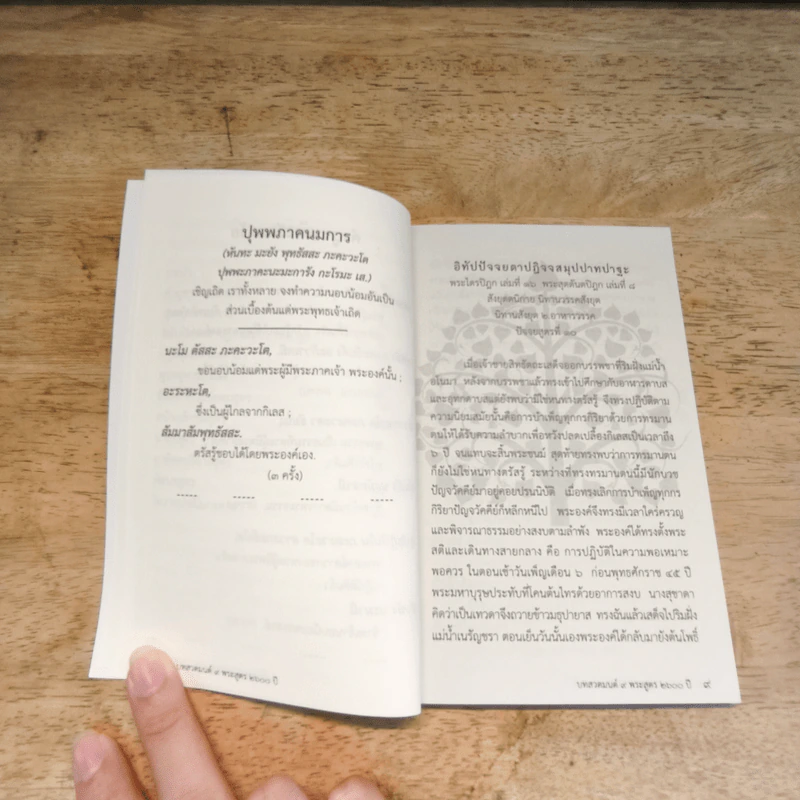 ปุพพภาคนมการ
(หันทะ มะยัง พุทธัสสะ ภะคะวะโต
ปุพพะภาคะนะมะการัง กะโรมะ เส.)
เชิญเถิด เราทั้งหลาย จงทำความนอบน้อมอันเป็น
ส่วนเบื้องต้นแด่พระพุทธเจ้าเถิด
นะโม ตัสสะ ภะคะวะโต,
ขอนอบน้อมแด่พระผู้มีพระภาคเจ้า พระองค์นั้น ;
อะระหะโต,
ซึ่งเป็นผู้ไกลจากกิเลส ;
สัมมาสัมพุทธัสสะ.
ตรัสรู้ชอบได้โดยพระองค์เอง.
(๓ ครั้ง)
บทสวดมนต์ ๙ พระสูตร ๒๖๐๐ ปี
อิทัปปัจจยตาปฏิจจสมุปปาทปาฐะ
พระไตรปิฎก เล่มที่ ๑๖ พระสุตตันตปิฎก เล่มที่ ๘
สังยุตตนิกาย นิทานวรรคสังยุต
นิทานสังยุต ๒.อาหารวรรค
ปัจจยสูตรที่ ๑๐
เมื่อเจ้าชายสิทธัตถะเสด็จออกบรรพชาที่ริมฝั่งแม่น้ำ
อโนมา หลังจากบรรพชาแล้วทรงเข้าไปศึกษากับอาฬารดาบส
และอุทกดาบสแต่ยังพบว่ามิใช่หนทางตรัสรู้ จึงทรงปฏิบัติตาม
ความนิยมสมัยนั้นคือการบำเพ็ญทุกกรกิริยาด้วยการทรมาน
ตนให้ได้รับความลำบากเพื่อหวังปลดเปลื้องกิเลสเป็นเวลาถึง
๖ ปี จนแทบจะสิ้นพระชนม์ สุดท้ายทรงพบว่าการทรมานตน
ก็ยังไม่ใช่หนทางตรัสรู้ ระหว่างที่ทรงทรมานตนนี้มีนักบวช
ปัญจวัคคีย์มาอยู่คอยปรนนิบัติ เมื่อทรงเลิกการบำเพ็ญทุกกร
กิริยาปัญจวัคคีย์ก็หลีกหนีไป พระองค์จึงทรงมีเวลาใคร่ครวญ
และพิจารณาธรรมอย่างสงบตามลำพัง พระองค์ได้ทรงตั้งพระ
สติและเดินทางสายกลาง คือ การปฏิบัติในความพอเหมาะ
พอควร ในตอนเช้าวันเพ็ญเดือน ๖ ก่อนพุทธศักราช ๔๕ ปี
พระมหาบุรุษประทับที่โคนต้นไทรด้วยอาการสงบ นางสุชาดา
คิดว่าเป็นเทวดาจึงถวายข้าวมธุปายาส ทรงฉันแล้วเสด็จไปริมฝั่ง
แม่น้ำเนรัญชรา ตอนเย็นวันนั้นเองพระองค์ได้กลับมายังต้นโพธิ์
บทสวดมนต์ ๙ พระสูตร ๒๖๐๐ ปี ๙